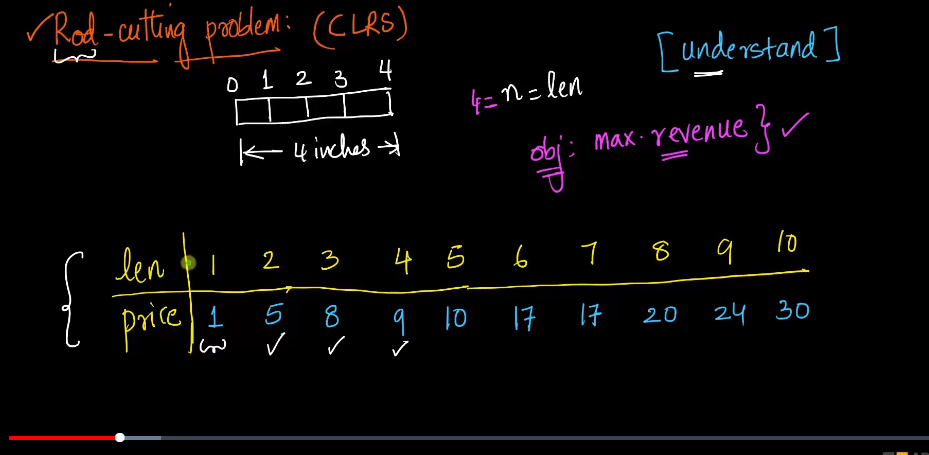 ✓ Rod-cutting problem: (CLRS)
[understand]
0 1 2 3 4
4 = n = len
4 inches
obj: max. revenue} ✓
len 1 2 3 4 5 6 7 8 9 10
price 1 5 8 9 10 17 17 20 24 30
✓ ✓ ✓